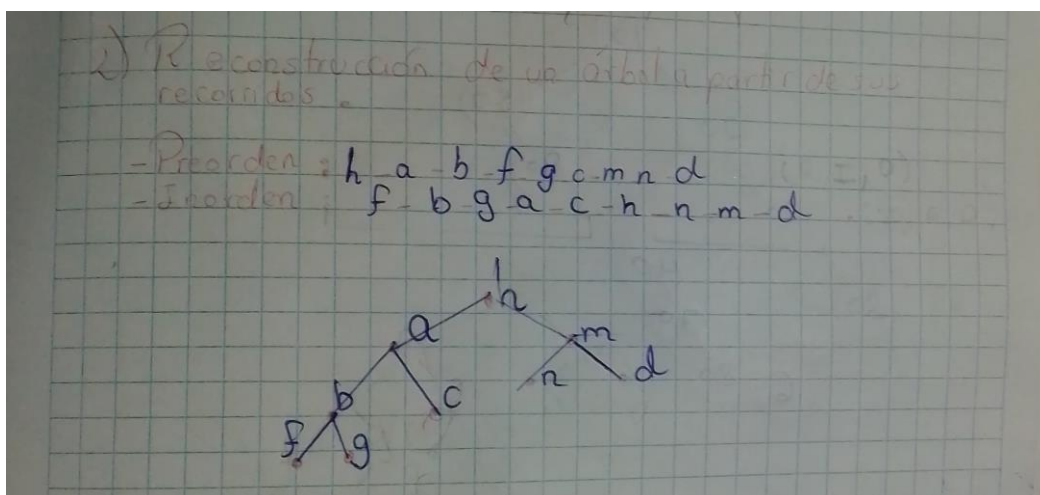 2) Reconstrucción de un árbol a partir de sus
recorridos.
- Preorden: h a b f g c m n d
- Inorden: f b g a c h n m d
h
a
m
n
d
b
c
f
g